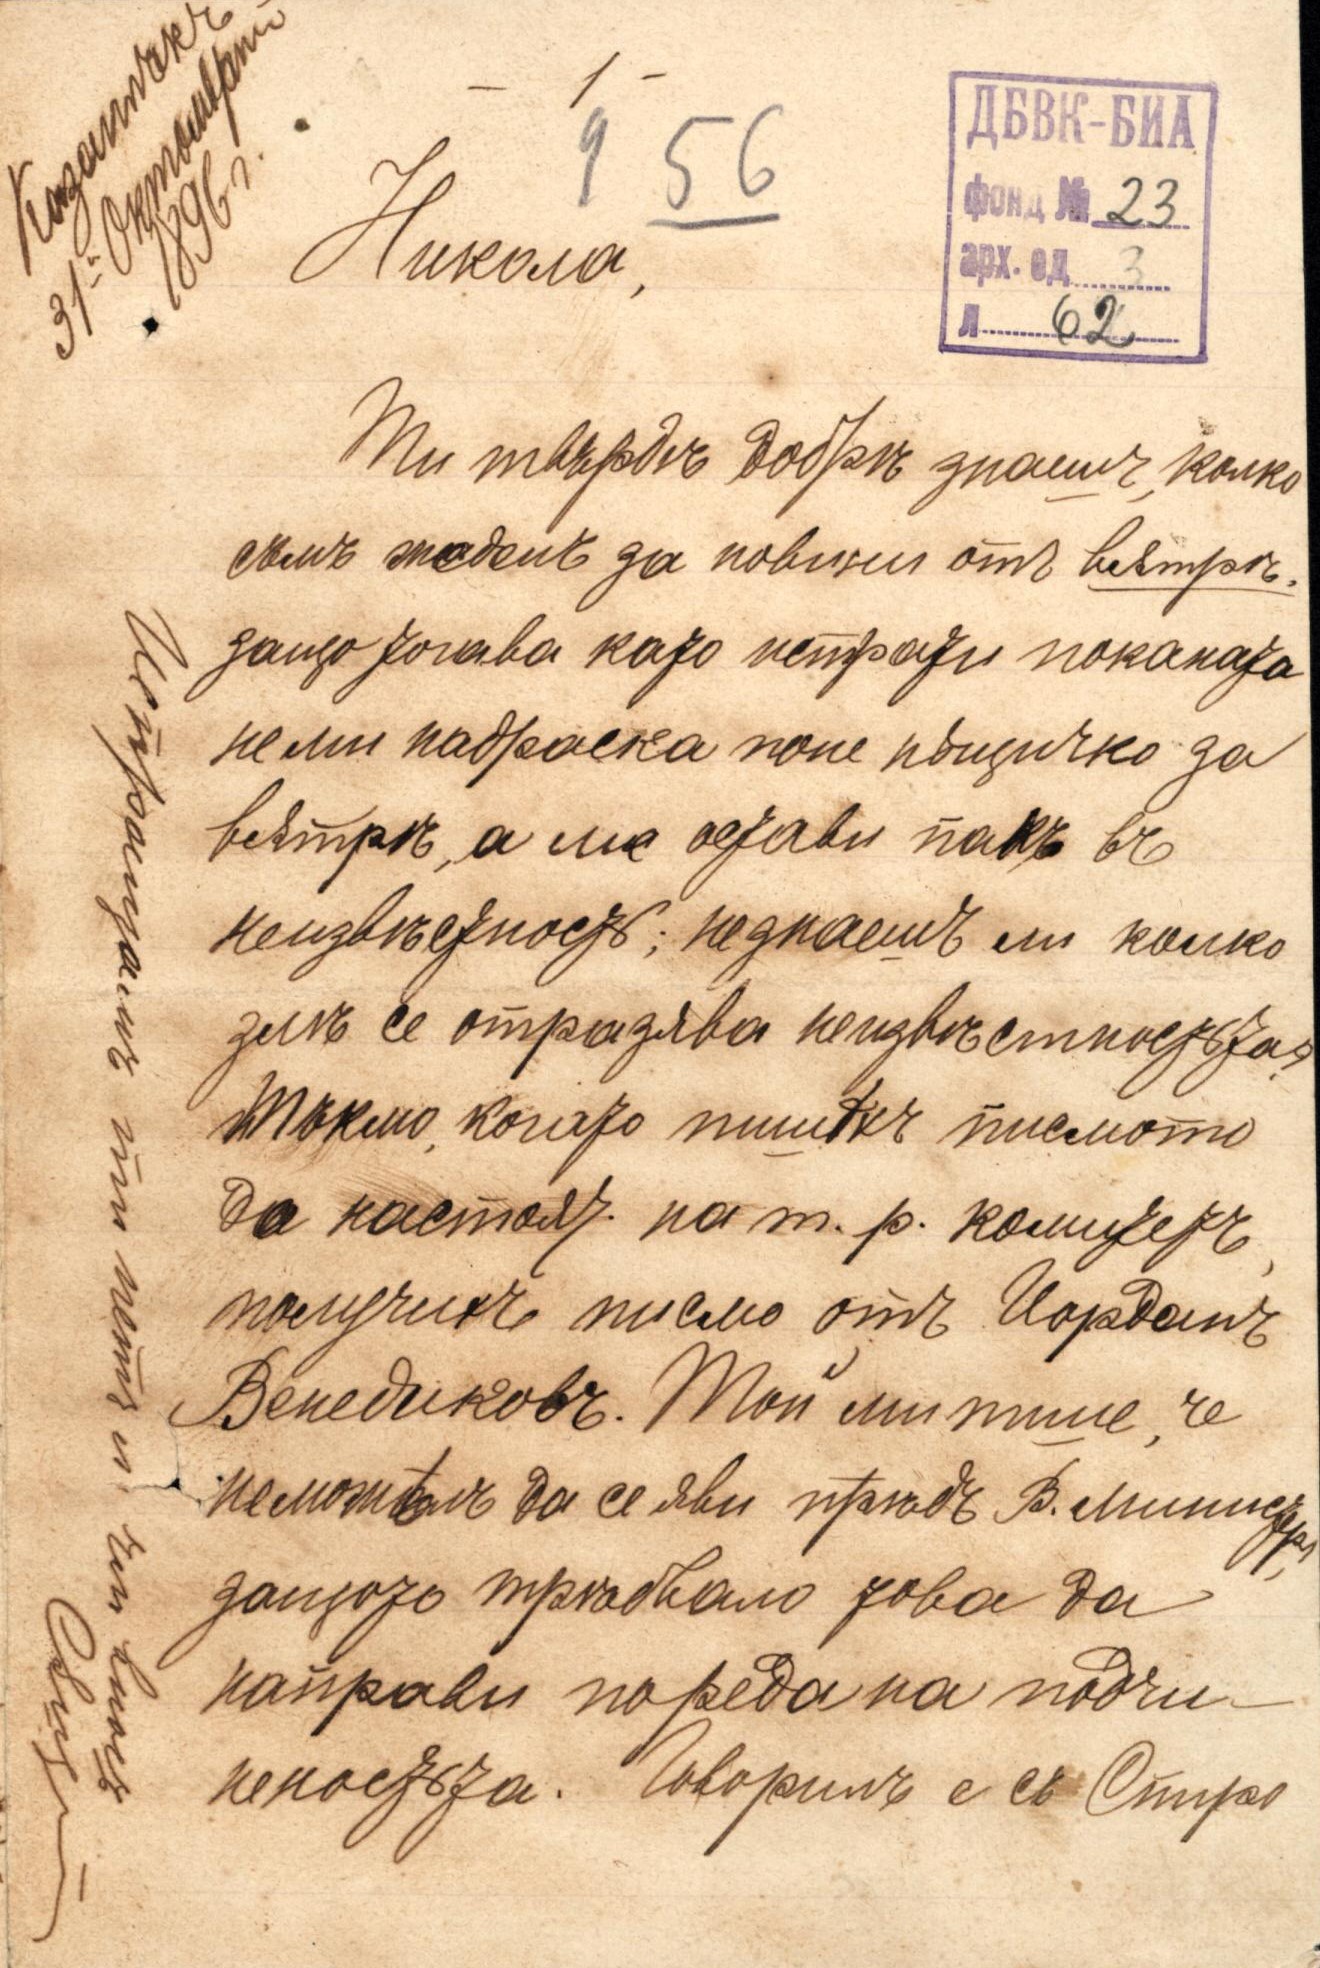 Казанлъкъ
31й Октомврий
1896 г.
– 1 –
9 56
ДБВК-БИА
фонд № 23
арх. ед. 3
л. 62
Никола,
Ти твърдѣ добрѣ знаешъ, колко
съмъ жаденъ за новини отъ вѫтрѣ.
защо тогава като испрати поканата
не ми надраска поне нѣщичко за
вѫтрѣ, а ме остави пакъ въ
неизвѣстность; не знаешъ ли колко
злѣ се отразява неизвѣстностьта?
Тъкмо, когато пишѫхъ писмото
да настоят. на т. р. комитетъ,
получихъ писмо отъ Йорданъ
Венедиковъ. Той ми пише, че
неможѫлъ да се яви прѣдъ В. Министер,
защото трѣбвало това да
направи по реда на подчи-
неностьта. Говорилъ е съ Спиро
Испращамъ ти петь и